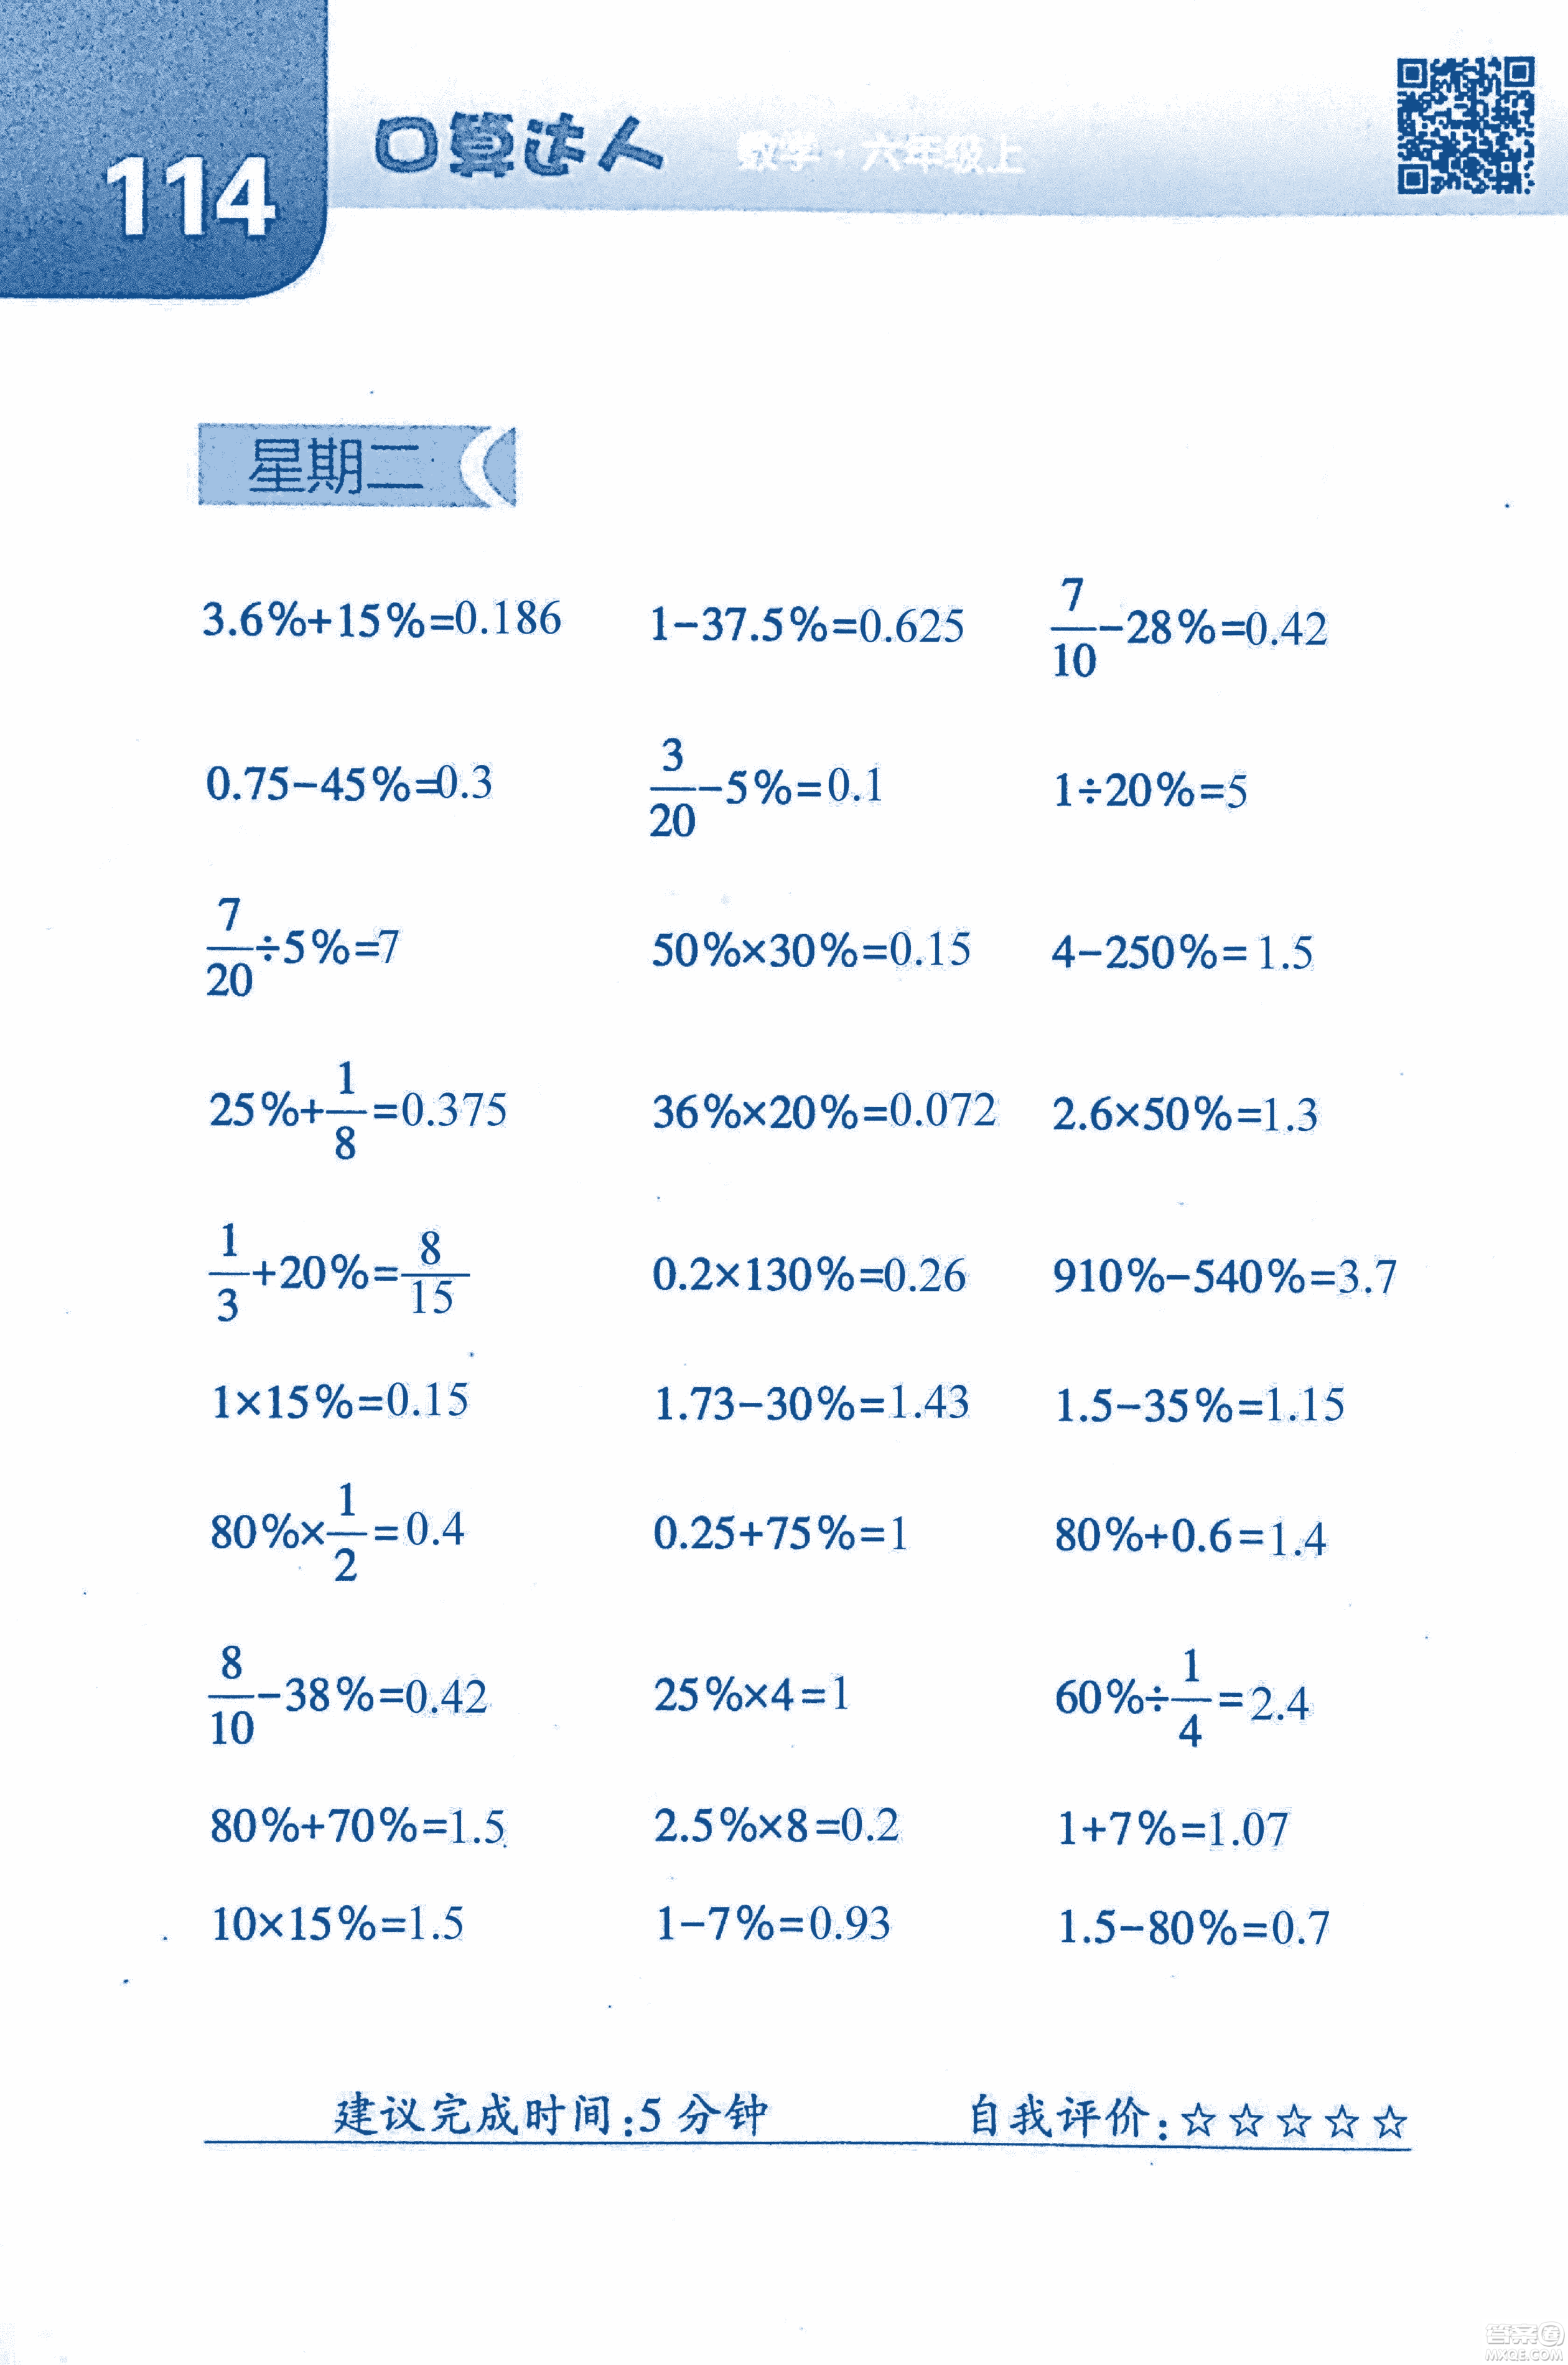 114
口算达人 数学·六年级上
星期二
3.6%+15%=0.186 1-37.5%=0.625 7/10-28%=0.42
0.75-45%=0.3 3/20-5%=0.1 1÷20%=5
7/20÷5%=7 50%×30%=0.15 4-250%=1.5
25%+1/8=0.375 36%×20%=0.072 2.6×50%=1.3
1/3+20%=8/15 0.2×130%=0.26 910%-540%=3.7
1×15%=0.15 1.73-30%=1.43 1.5-35%=1.15
80%×1/2=0.4 0.25+75%=1 80%+0.6=1.4
8/10-38%=0.42 25%×4=1 60%÷1/4=2.4
80%+70%=1.5 2.5%×8=0.2 1+7%=1.07
10×15%=1.5 1-7%=0.93 1.5-80%=0.7
建议完成时间:5分钟 自我评价:☆☆☆☆☆
答案圈
MXQE.COM